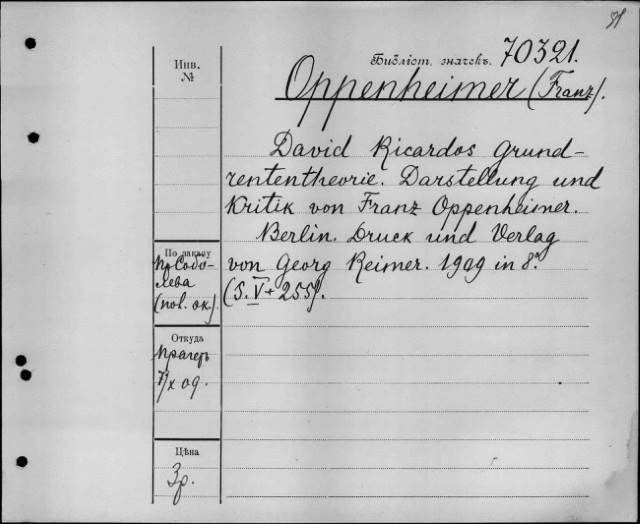 Инв.
№
Библіот. значекъ. 70321.
Oppenheimer (Franz).
David Ricardos Grund-
rententheorie. Darstellung und
Kritik von Franz Oppenheimer.
Berlin. Druck und Verlag
von Georg Reimer. 1909 in 8°.
(S. V + 255).
По заказу
пр. Собо-
лева
(пов. ок.).
Откуда
Прагеръ
/X 09.
Цѣна
3р.